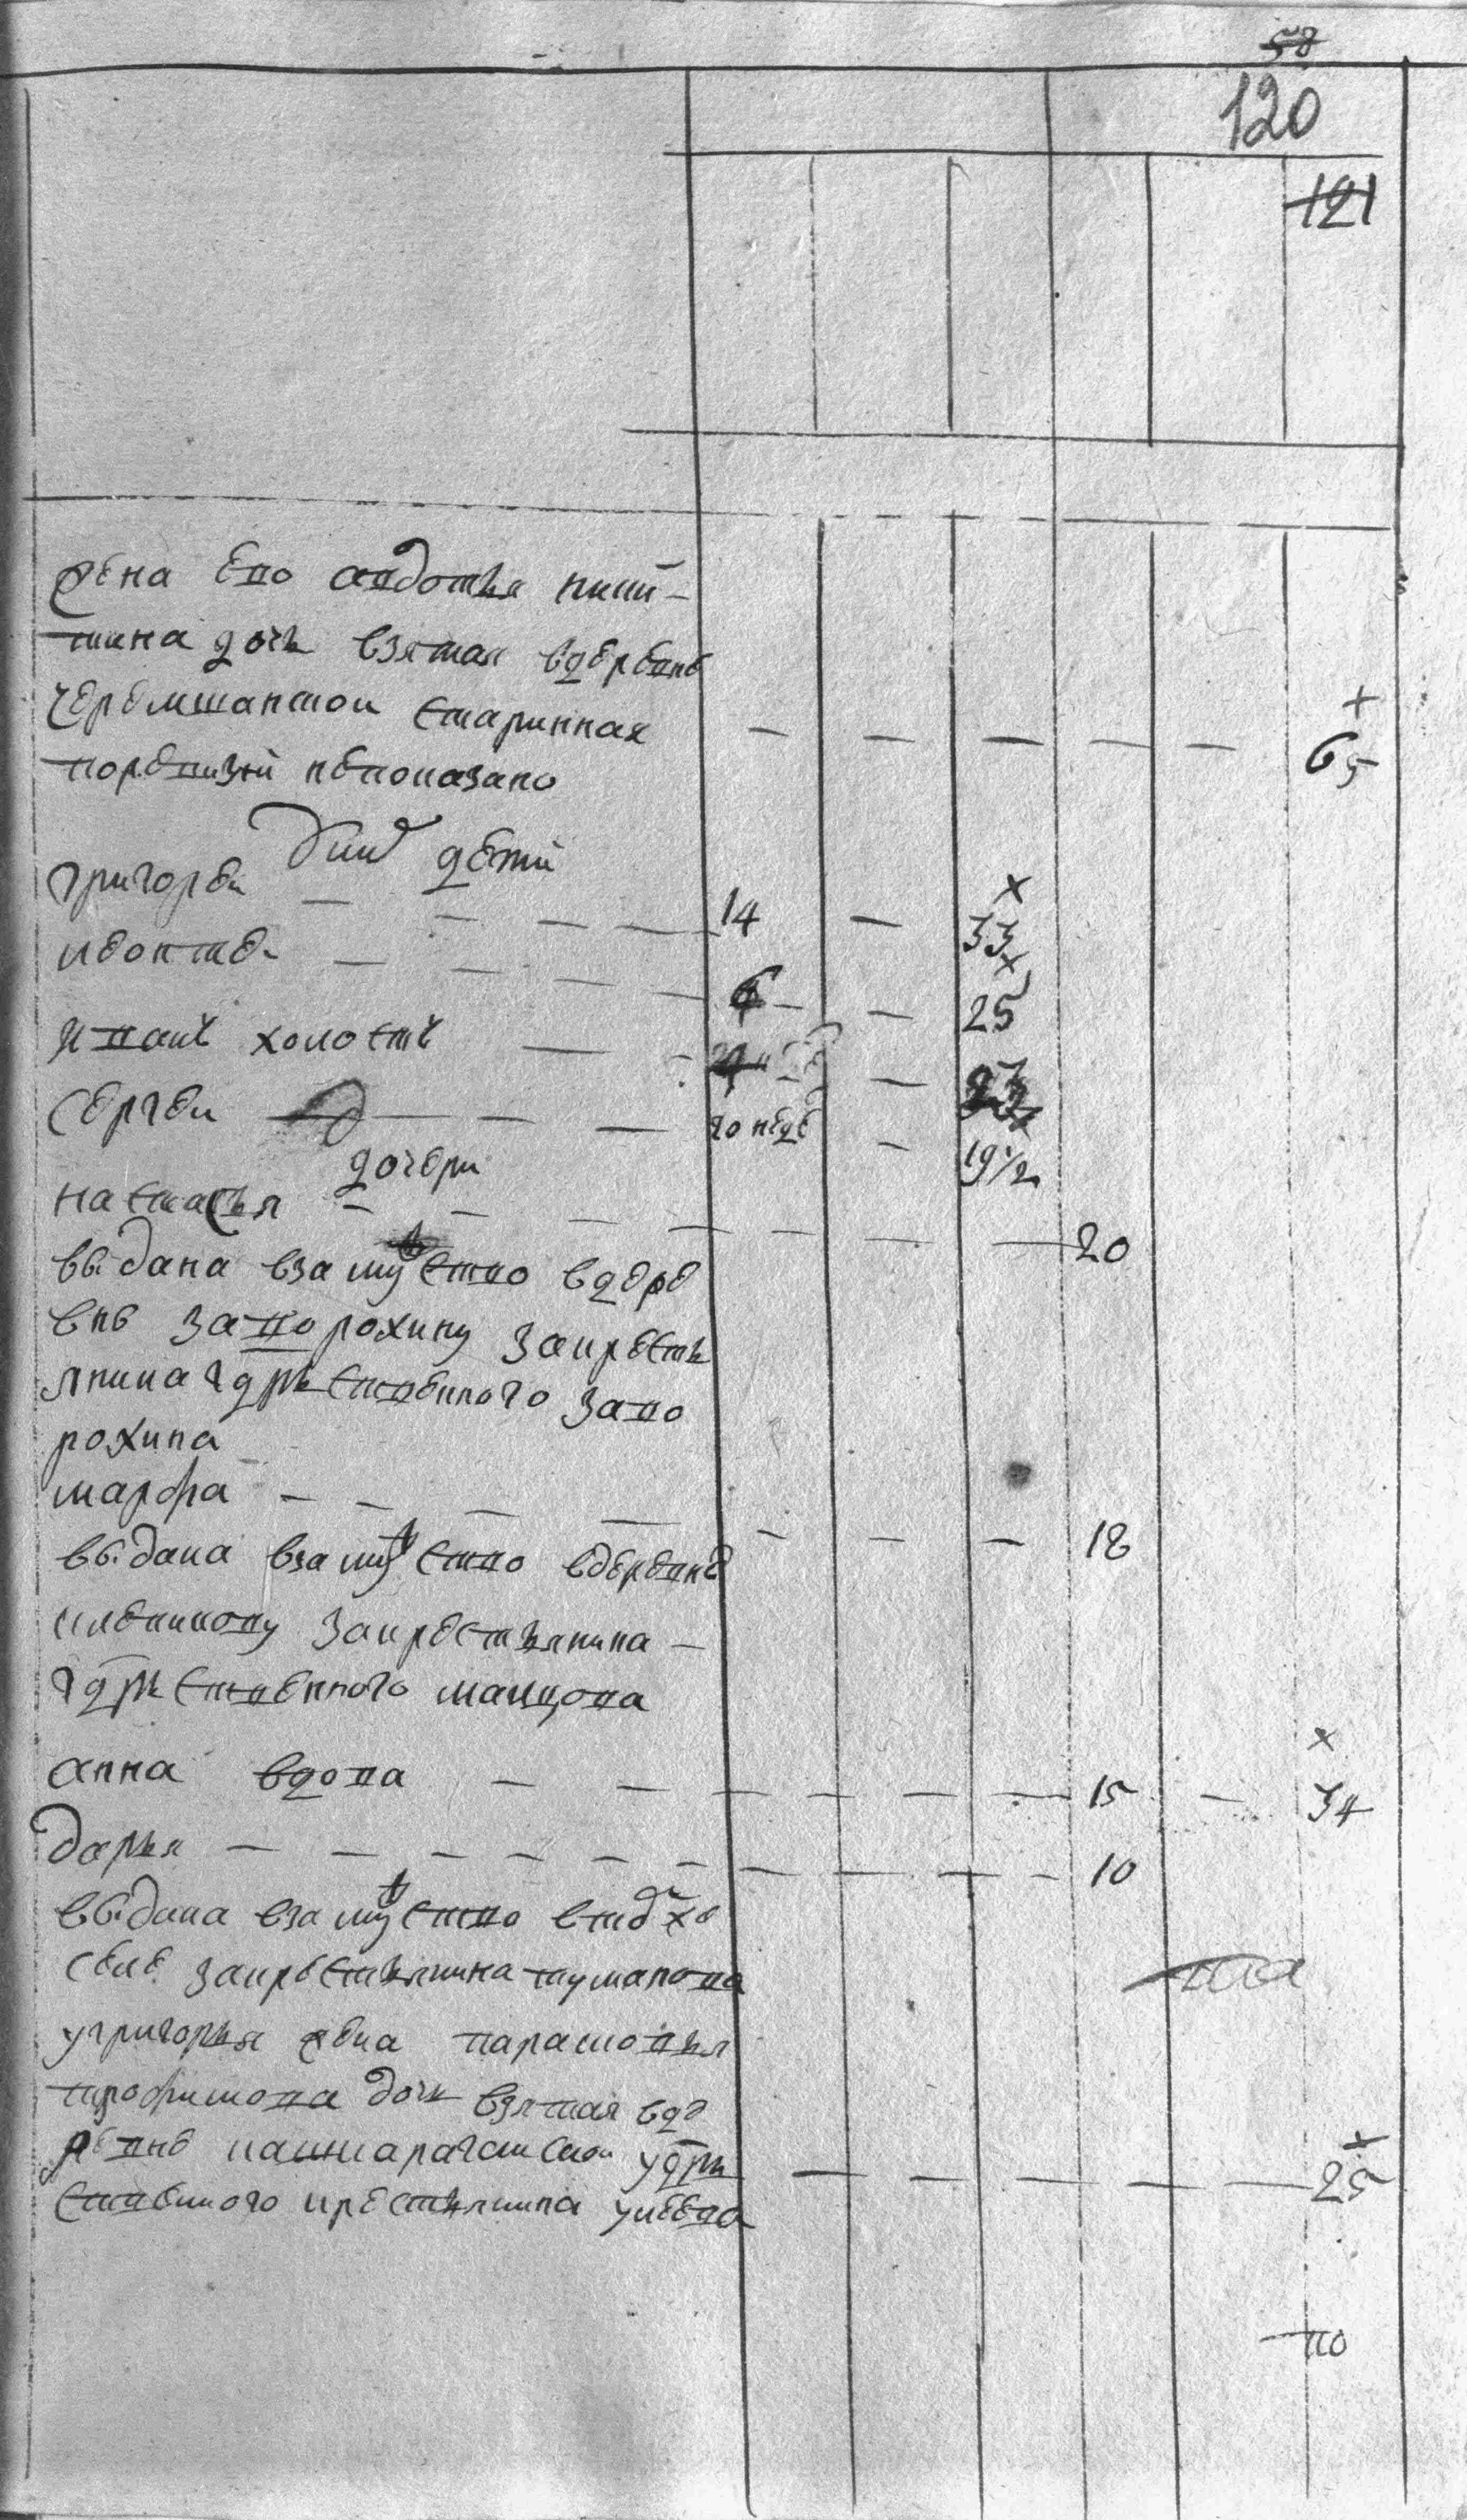 58
120
121
жена ево авдотья ники-
тина дочь взятая вдеревне
черемшанской старинная
поревизии непоказано
уних дети
григорей 14 33
леонтей 6 25
иванъ холостъ 23
сергей 20 недѣ 19 1/2
дочери
настасья 20
выдана взамужство вдере
вне заворохину закресть
янина гдрственного заво
рохина
марфа 18
выдана взамужство вдеревне
закрестьянина
гдрственного
анна вдова 15 34
дарья 10
выдана взамужство
селе закрестьянина туманова
угригорья жена парасковья
трофимова дочь взятая вде
ревне угдрь
ственного крестьянина 25